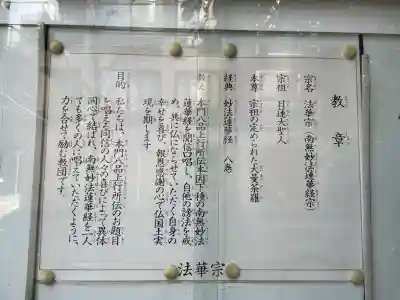 教章
宗名 法華宗（南無妙法蓮華経宗）
宗祖 日蓮大聖人
本尊 宗祖の定められた大曼荼羅
経典 妙法蓮華経 八巻
教え 本門八品上行所伝本因下種の南無妙法
蓮華経を聞信口唱し、自他の謗法を戒
め、共に仏にならせていただく自身の
幸せを喜び、報恩感謝の心で仏国土実
現を期します
目的 私たちは、本門八品上行所伝のお題目
を唱える同信の人々の喜びによって異体
同心で結ばれ、南無妙法蓮華経を一人
でも多くの人に唱えていただくように、
力を合せて励む教団です
法華宗